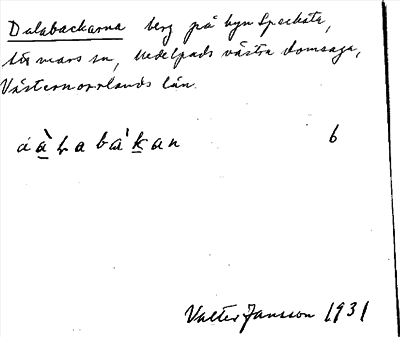 Dalabackarna berg på byn Specksta,
Stöde socken, Medelpads västra domsaga,
Västernorrlands län.
6
Valter Jansson 1931